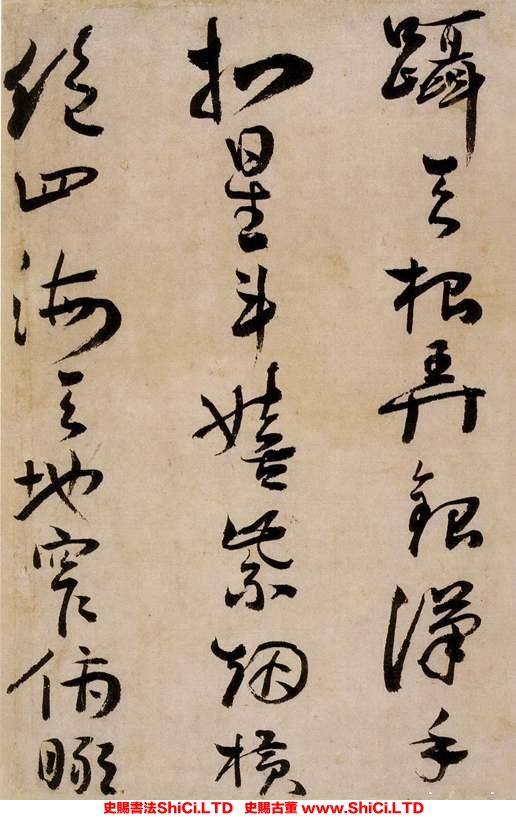 躡天根弄銀漢手
扣星斗嬉紫烟橫
絶四海天地窄俯瞰
史賜書法ShiCi.LTD 史賜古董 www.ShiCi.LTD